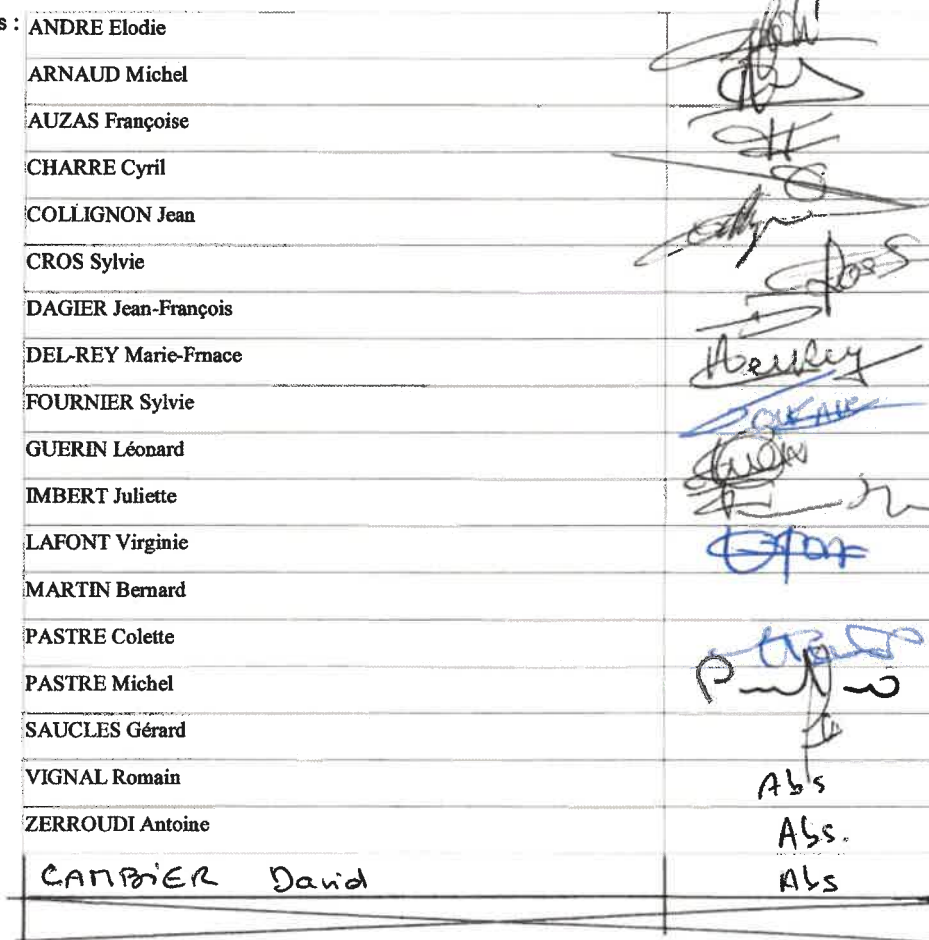 s : ANDRE Elodie
ARNAUD Michel
AUZAS Françoise
CHARRE Cyril
COLLIGNON Jean
CROS Sylvie
DAGIER Jean-François
DEL-REY Marie-Frnace
FOURNIER Sylvie
GUERIN Léonard
IMBERT Juliette
LAFONT Virginie
MARTIN Bernard
PASTRE Colette
PASTRE Michel
SAUCLES Gérard
VIGNAL Romain Abs
ZERROUDI Antoine Abs.
CAMBIER David Abs